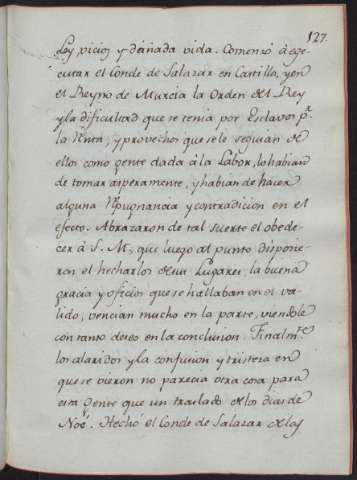 127.
Ley, vicios y dañada vida. Comenzó á ege-
cutar el Conde de Salazar en Castilla, y en
el Reyno de Murcia la Orden del Rey
y la dificultad que se tenia por Esclavos pr.
la Renta, y provechos que se le seguian de
ellos como gente dada á la Labor, lo habian
de tomar asperamente, y habian de hacer
alguna repugnancia y contradicion en el
efecto. Abrazaron de tal suerte el obede-
cer á S. M, que luego al punto dispusie-
ron el hecharlos de sus Lugares: la buena
gracia y oficios que se hallaban en el va-
lido, vencian mucho en la parte, viendole
con tanto deseo en la conclusion. Finalmte.
los alaridos y la confusion y tristeza en
que se vieron no parecia otra cosa para
esta gente que un traslado de los dias de
Noé. Hechó el Conde de Salazar de las